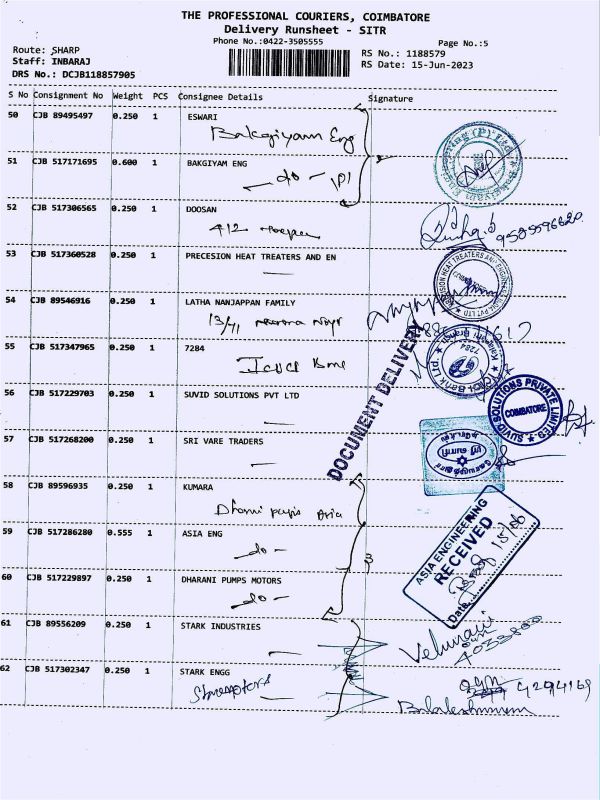 THE PROFESSIONAL COURIERS, COIMBATORE
Delivery Runsheet - SITR
Phone No.:0422-3505555
Page No.:5
Route: SHARP
Staff: INBARAJ
DRS No.: DCJB118857905
RS No.: 1188579
RS Date: 15-Jun-2023
S No Consignment No Weight PCS Consignee Details Signature
50 CJB 89495497 0.250 1 ESWARI
Bakgiyam Eng
51 CJB 517171695 0.600 1 BAKGIYAM ENG
do
52 CJB 517306565 0.250 1 DOOSAN
412
9585596620
53 CJB 517360528 0.250 1 PRECESION HEAT TREATERS AND EN
54 CJB 89546916 0.250 1 LATHA NANJAPPAN FAMILY
13/71
55 CJB 517347965 0.250 1 7284
7284
DOCUMENT DELIVERY
56 CJB 517229703 0.250 1 SUVID SOLUTIONS PVT LTD
SUVID SOLUTIONS PRIVATE LIMITED
COIMBATORE
57 CJB 517268200 0.250 1 SRI VARE TRADERS
58 CJB 89596935 0.250 1 KUMARA
Asia
59 CJB 517286280 0.555 1 ASIA ENG
do
ASIA ENGINEERING
RECEIVED
Date 15/06
60 CJB 517229897 0.250 1 DHARANI PUMPS MOTORS
do
61 CJB 89556209 0.250 1 STARK INDUSTRIES
62 CJB 517302347 0.250 1 STARK ENGG